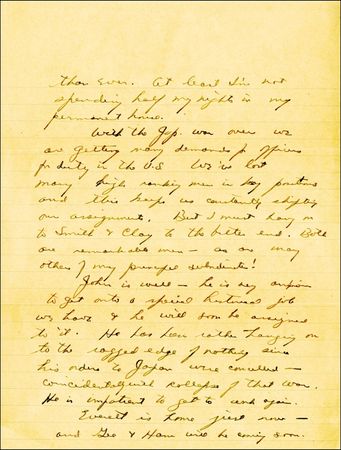 than ever. At least I'm not
spending half my nights in my
permanent house.
With the Jap. war over we
are getting many demands for officers
for duty in the U.S. We've lost
many high ranking men in key positions
and this keeps us constantly shifting
our assignments. But I must hang on
to Smith & Clay to the bitter end. Both
are remarkable men — as are many
others of my principal subordinates!
John is well — he is very anxious
to get onto a special historical job
we have & he will soon be assigned
to it. He has been rather hanging on
to the ragged edge of nothing since
his orders to Japan were cancelled —
coincidentally with collapse of that war.
He is impatient to get to work again.
Everett is home just now —
and Geo & Hans will be coming soon.